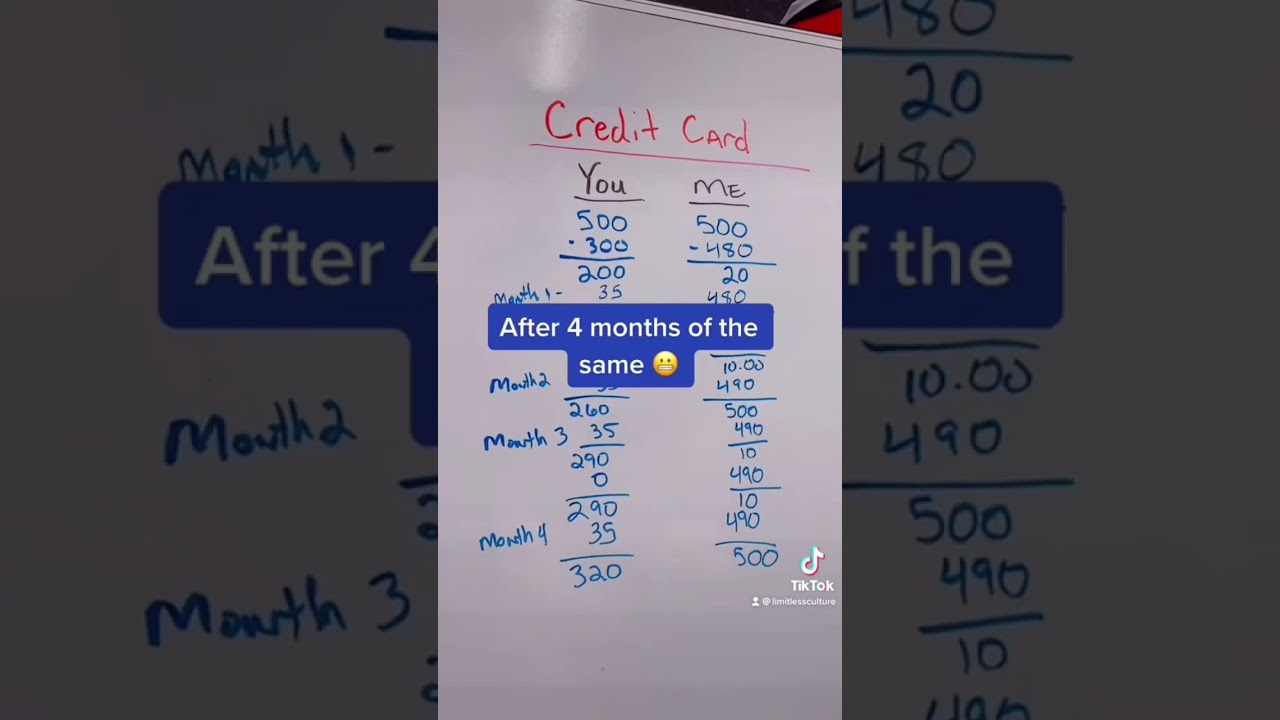 Credit Card
You ME
500 500
- 300 - 480
200 20
Month 1 - 35 480
After 4 months of the
same 😬
10.00
Month 2 490
260 500
Month 3 35 490
290 10
0 490
290 10
Month 4 35 490
320 500
TikTok
@limitlessculture